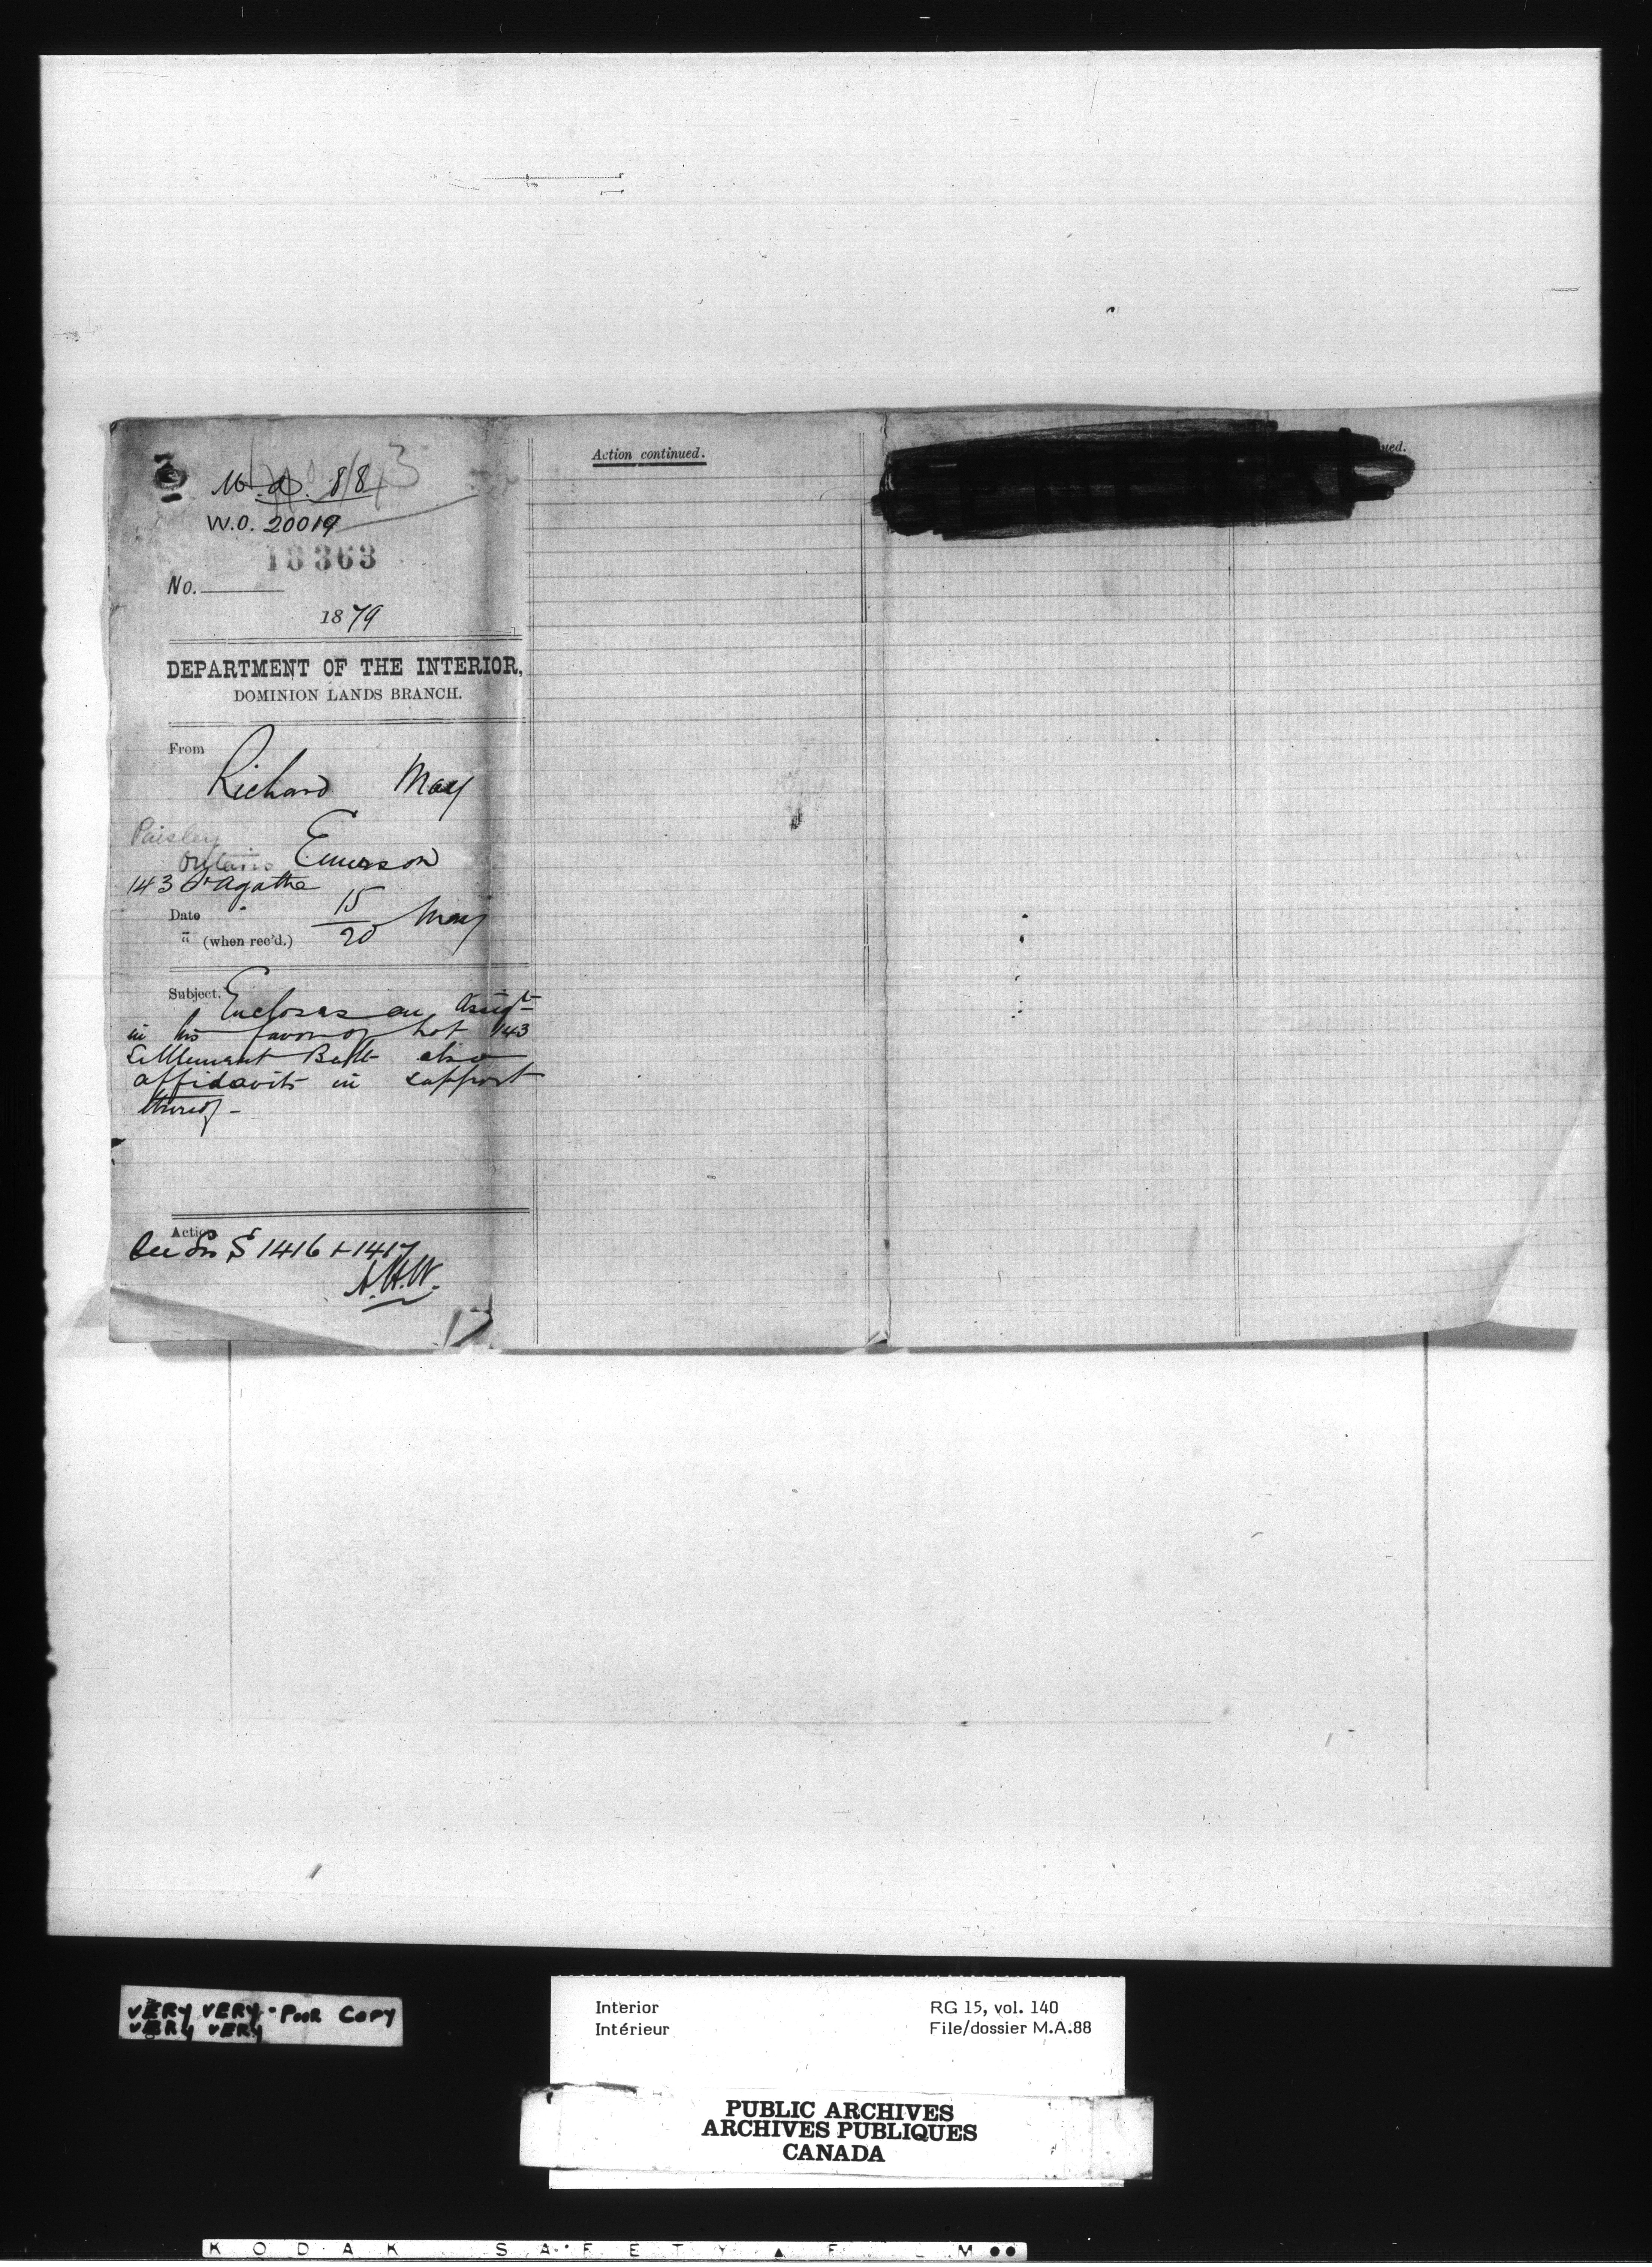 M.A. 88
W.O. 20019
18363
No.
1879
DEPARTMENT OF THE INTERIOR,
DOMINION LANDS BRANCH.
From
Richard May
Paisley
Ontario Emerson
143 St Agathe
Date 15 May
" (when rec'd.) 20
Subject. Encloses an Assigt
in his favor of Lot 143
Settlement Belt also
affidavits in support
thereof -
Action
See S 1416 + 1417
A.H.W.
Action continued.
ued.
VERY VERY POOR COPY
VERY VERY
Interior
Intérieur
RG 15, vol. 140
File/dossier M.A.88
PUBLIC ARCHIVES
ARCHIVES PUBLIQUES
CANADA
KODAK SAFETY FILM